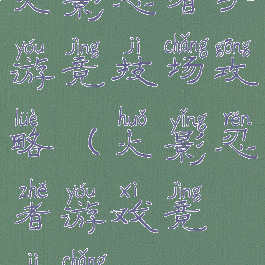 yóu jìng jì chǎng gōng
游竞技场攻
lüè huǒ yǐng rěn
略（火影忍
zhě yóu xì jìng
者游戏竞
jì chǎng